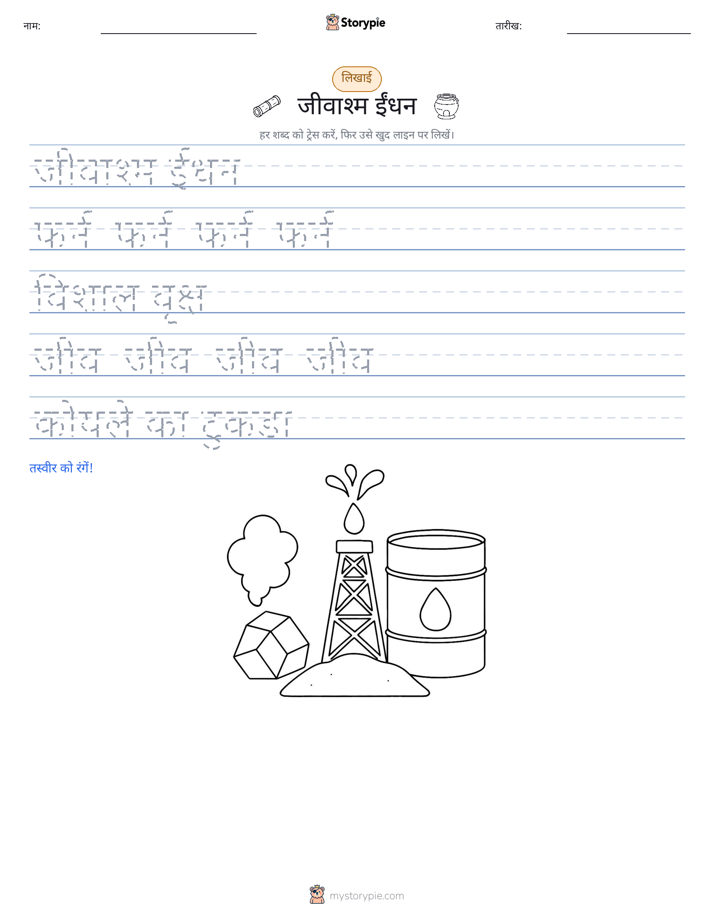 नाम:
Storypie
तारीख:
लिखाई
जीवाश्म ईंधन
हर शब्द को ट्रेस करें, फिर उसे खुद लाइन पर लिखें।
जीवाश्म ईंधन
फर्न फर्न फर्न फर्न
विशाल वृक्ष
जीव जीव जीव जीव
कोयले का टुकडा
तस्वीर को रंगें!
mystorypie.com